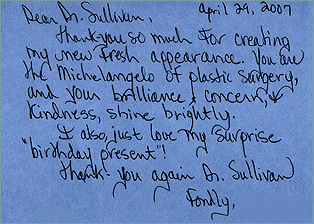 Dear Dr. Sullivan, april 29, 2007
thank you so much for creating
my new fresh appearance. You are
the Michelangelo of plastic surgery,
and your brilliance, concern, &
kindness, shine brightly.
I also, just love my surprise
"birthday present"!
Thank-you again Dr. Sullivan
Fondly,